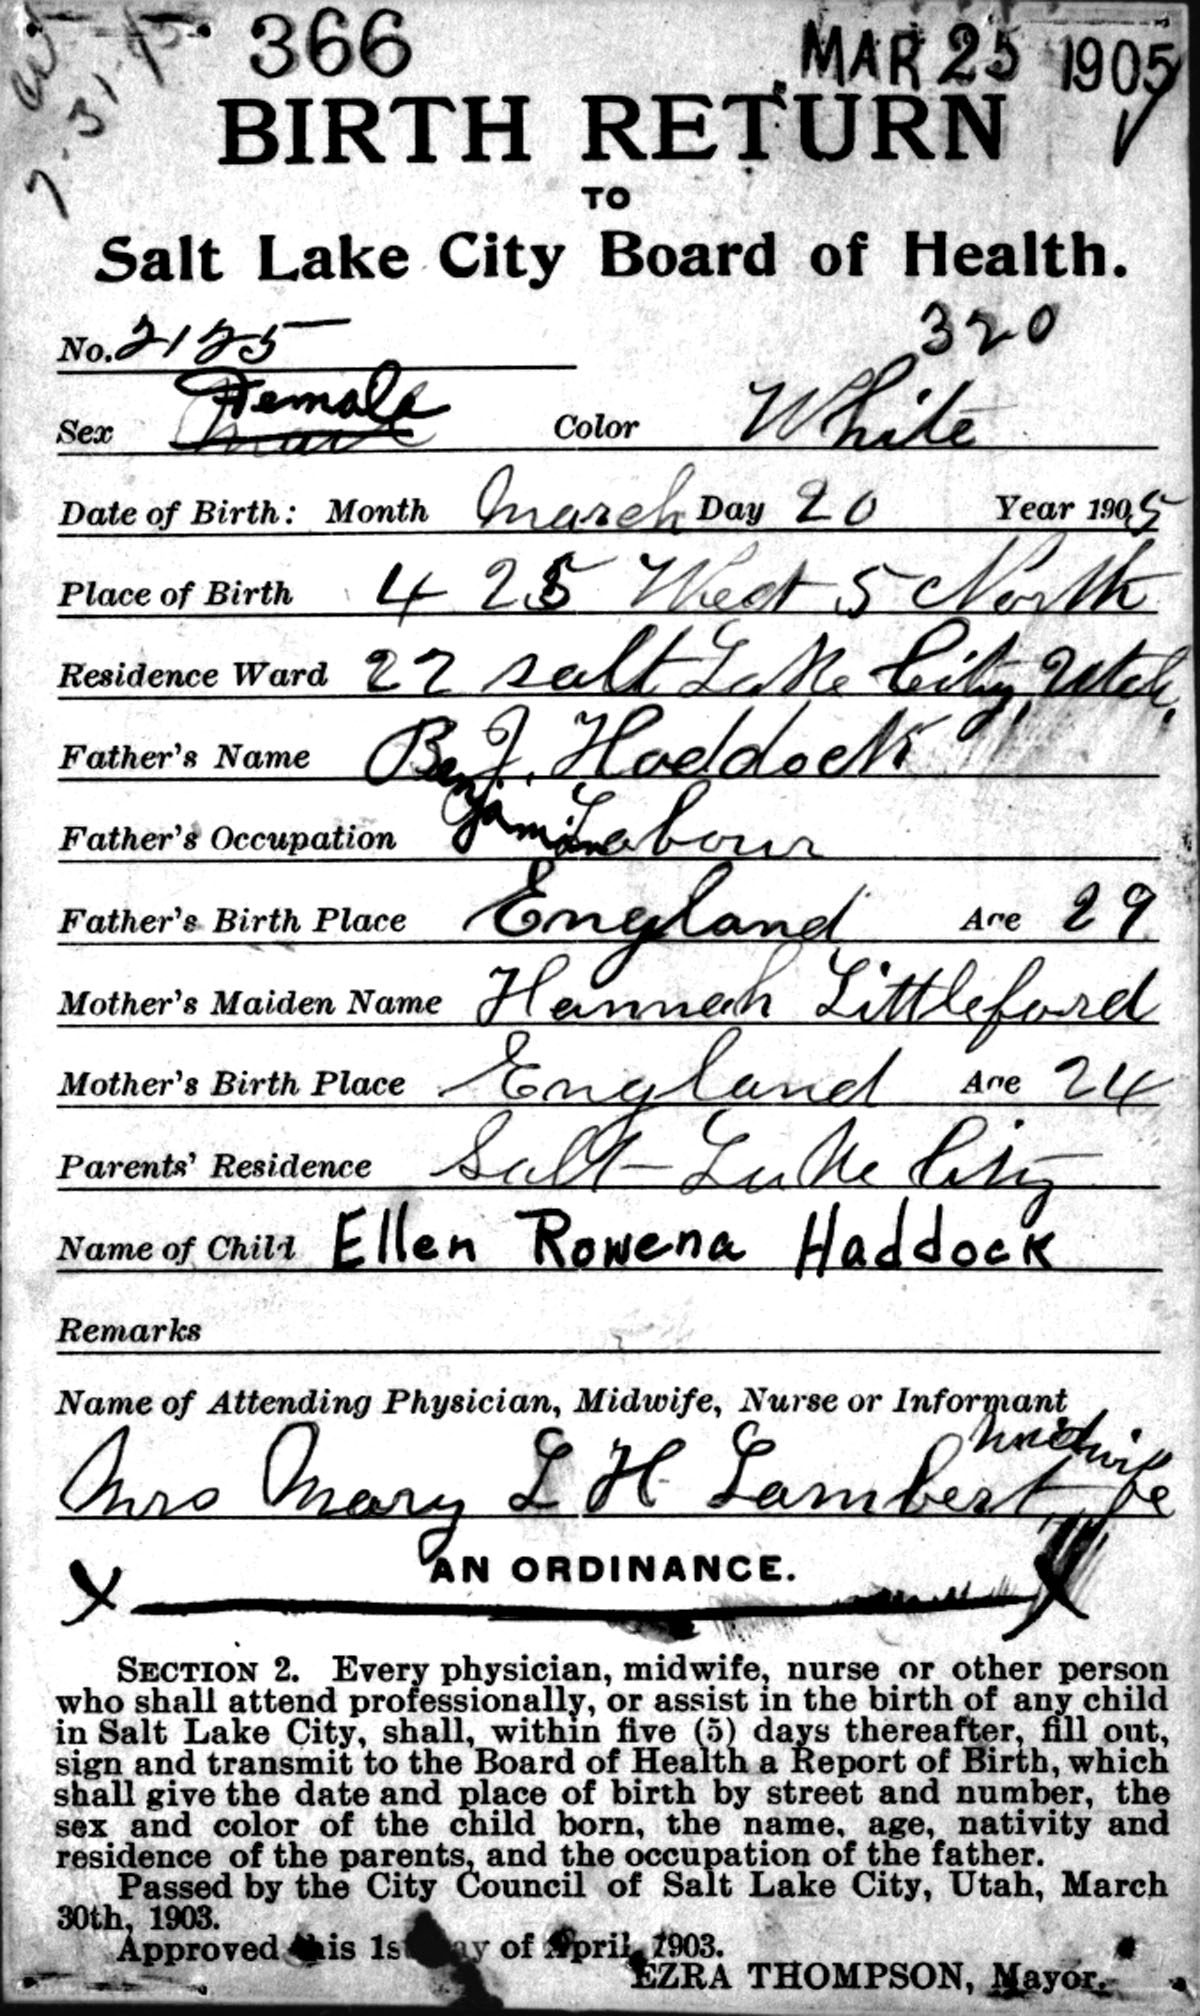 366 MAR 25 1905
7-31-45
BIRTH RETURN
TO
Salt Lake City Board of Health.
320
No. 2125
Female
Sex Male Color White
Date of Birth: Month March Day 20 Year 1905
Place of Birth 425 West 5 North
Residence Ward 22 Salt Lake City, Utah,
Father's Name Ben J. Haddock
jamin
Father's Occupation Labour
Father's Birth Place England Age 29
Mother's Maiden Name Hannah Littleford
Mother's Birth Place England Age 24
Parents' Residence Salt Lake City
Name of Child Ellen Rowena Haddock
Remarks
Name of Attending Physician, Midwife, Nurse or Informant
Mrs Mary L H Lambert midwife
AN ORDINANCE.
X X
SECTION 2. Every physician, midwife, nurse or other person
who shall attend professionally, or assist in the birth of any child
in Salt Lake City, shall, within five (5) days thereafter, fill out,
sign and transmit to the Board of Health a Report of Birth, which
shall give the date and place of birth by street and number, the
sex and color of the child born, the name, age, nativity and
residence of the parents, and the occupation of the father.
Passed by the City Council of Salt Lake City, Utah, March
30th, 1903.
Approved this 1st day of April, 1903.
EZRA THOMPSON, Mayor.